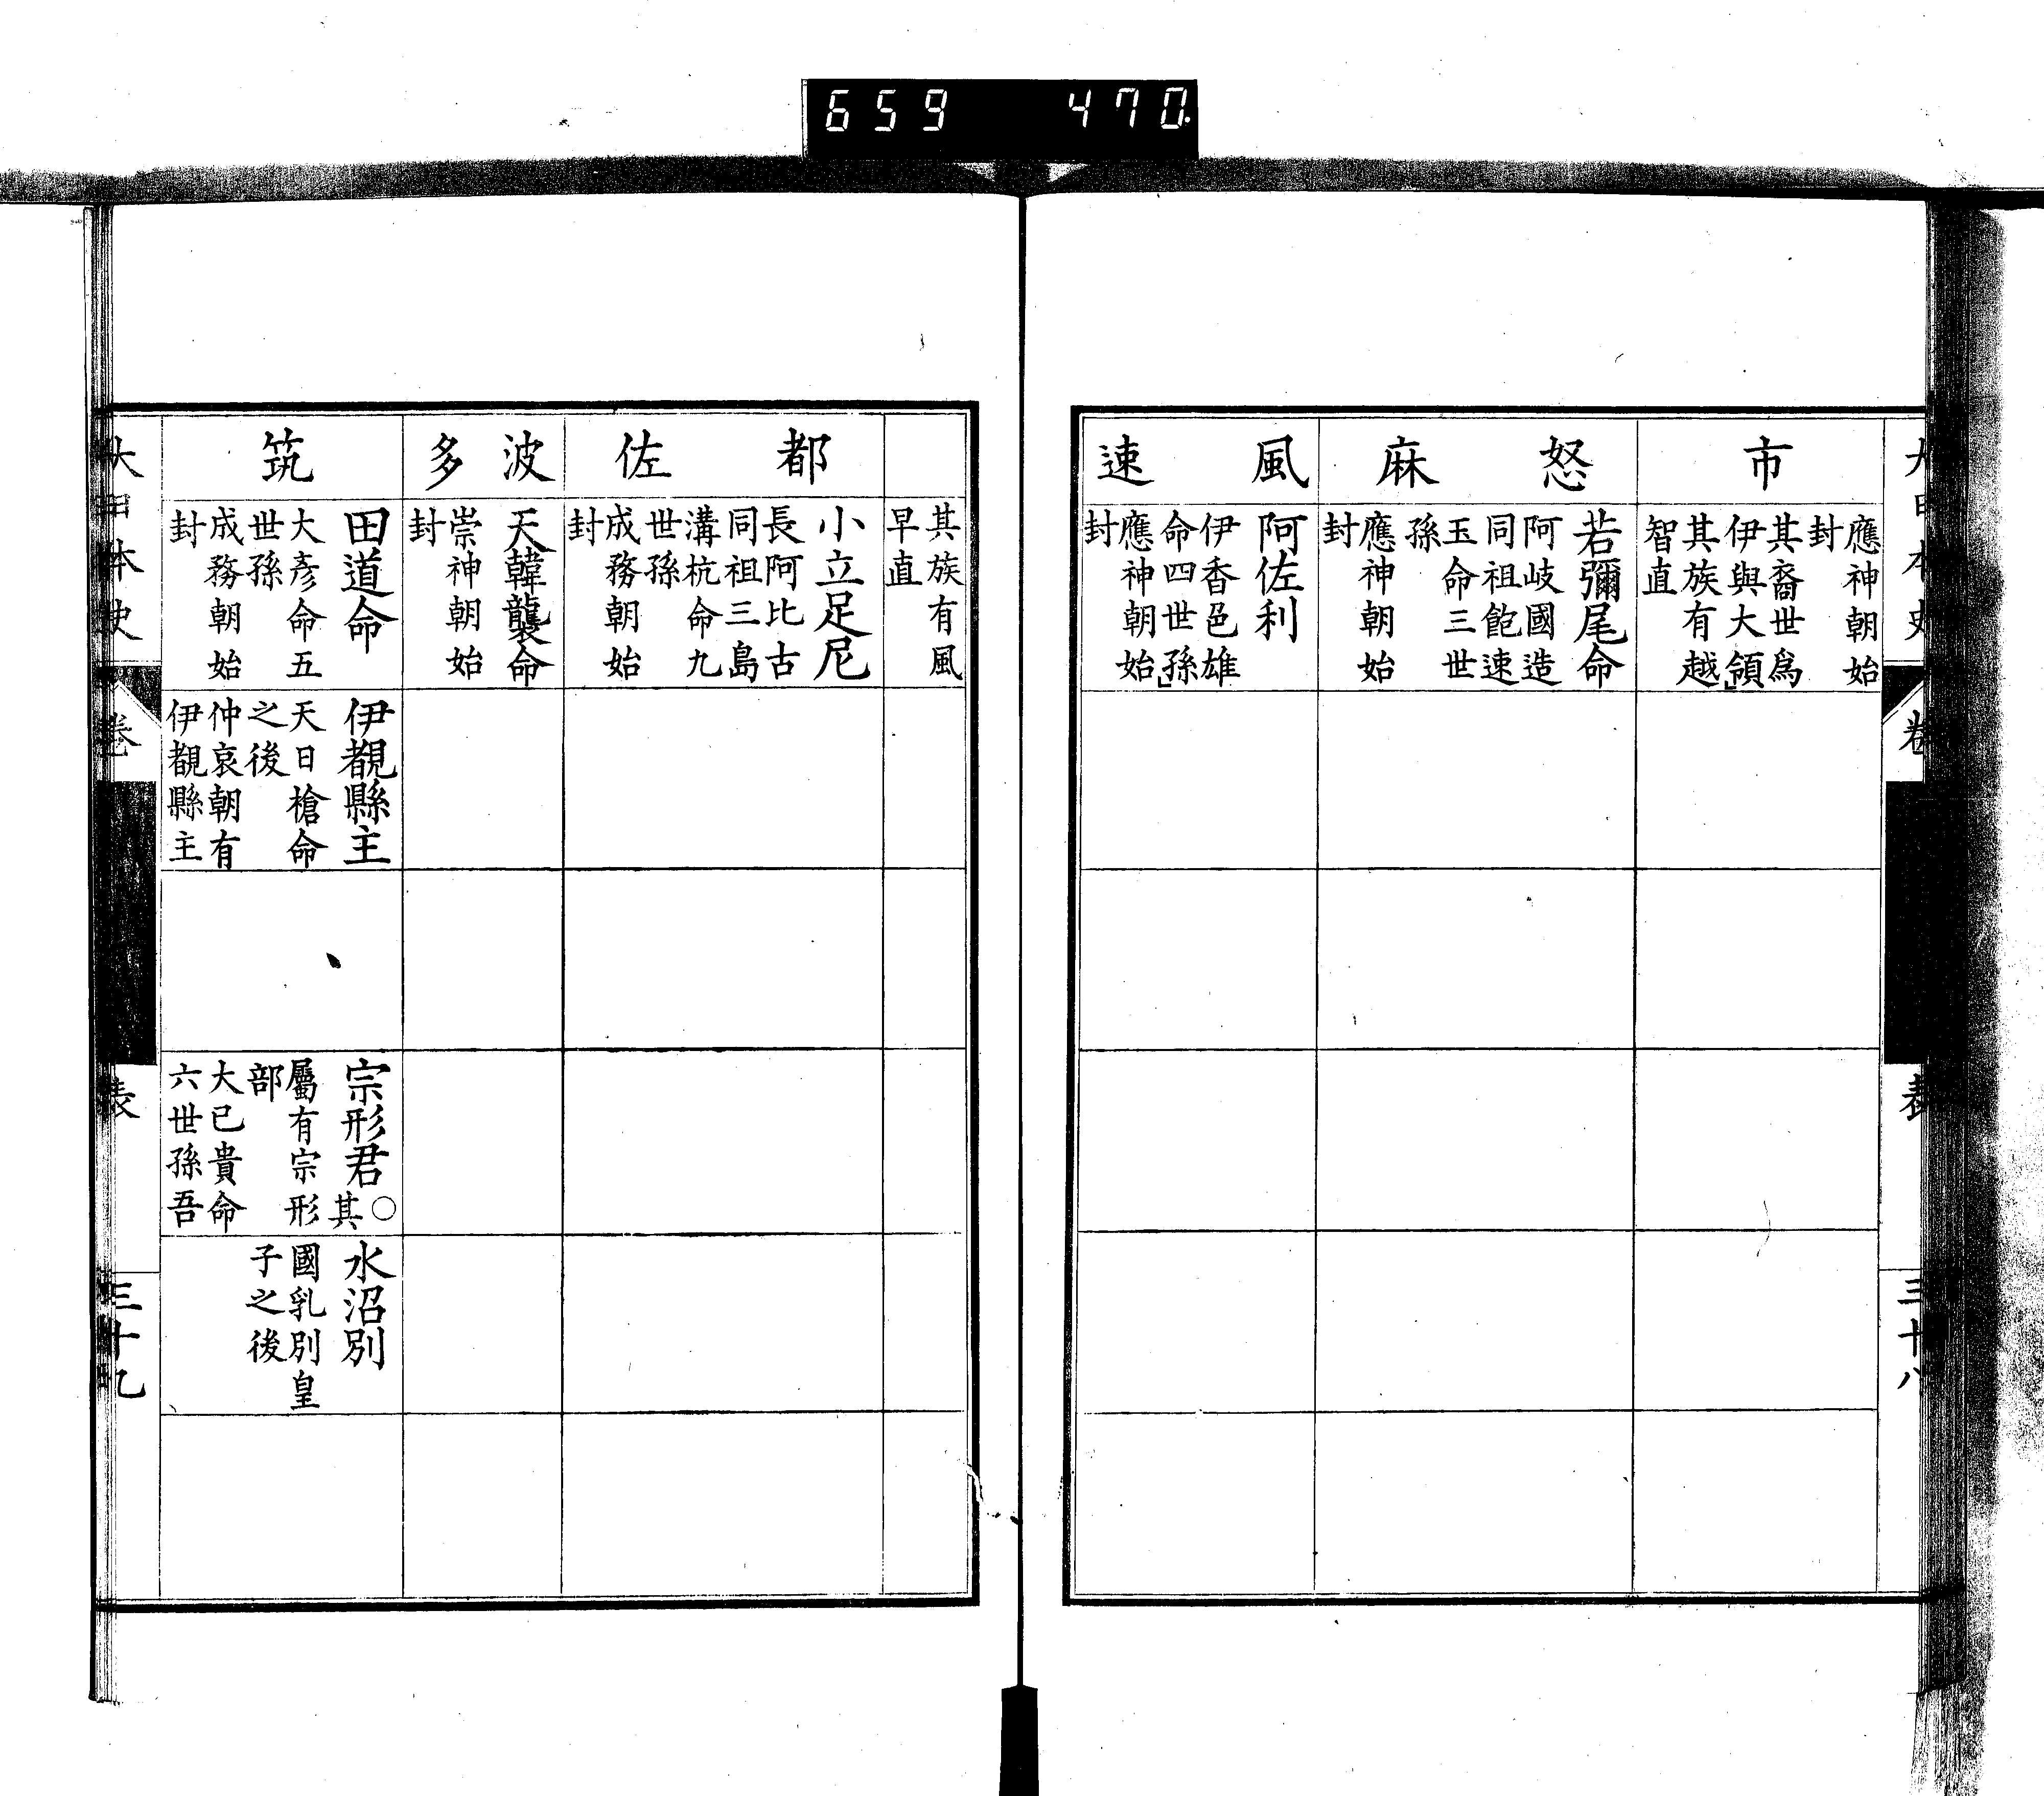 659 470
大日本史
卷
表
三十八
市
應神朝始
封
其裔世爲
伊與大領」
其族有越
智直
怒麻
若彌尾命
阿岐國造
同祖飽速
玉命三世
孫
應神朝始
封
風速
阿佐利
伊香色雄
命四世孫」
應神朝始
封
其族有風
早直
都佐
小立足尼
長阿比古
同祖三島
溝杭命九
世孫
成務朝始
封
波多
天韓襲命
崇神朝始
封
筑
田道命
大彥命五
世孫
成務朝始
封
伊覩縣主
天日槍命
之後
仲哀朝有
伊覩縣主
宗形君○其
屬有宗形
部
大已貴命
六世孫吾
水沼別
國乳別皇
子之後
大日本史
卷
表
三十九